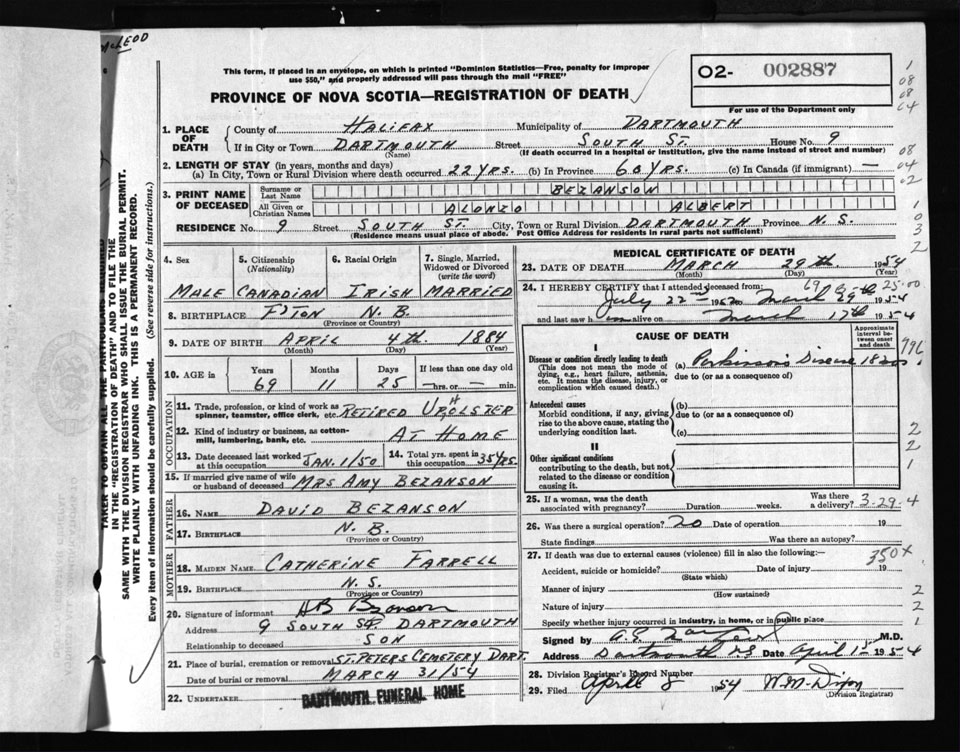 McLEOD
This form, if placed in an envelope, on which is printed "Dominion Statistics—Free, penalty for improper
use $50," and properly addressed will pass through the mail "FREE"
O2- 002887
For use of the Department only
PROVINCE OF NOVA SCOTIA—REGISTRATION OF DEATH
1. PLACE OF DEATH County of HALIFAX Municipality of DARTMOUTH
If in City or Town DARTMOUTH Street SOUTH ST. House No. 9
(Name) (If death occurred in a hospital or institution, give the name instead of street and number)
2. LENGTH OF STAY (in years, months and days)
(a) In City, Town or Rural Division where death occurred 22 YRS. (b) In Province 60 YRS. (c) In Canada (if immigrant) —
3. PRINT NAME OF DECEASED Surname or Last Name BEZANSON
All Given or Christian Names ALONZO ALBERT
RESIDENCE No. 9 Street SOUTH ST. City, Town or Rural Division DARTMOUTH Province N.S.
(Residence means usual place of abode. Post Office Address for residents in rural parts not sufficient)
4. Sex MALE
5. Citizenship (Nationality) CANADIAN
6. Racial Origin IRISH
7. Single, Married, Widowed or Divorced (write the word) MARRIED
8. BIRTHPLACE N.B.
(Province or Country)
9. DATE OF BIRTH APRIL 4th. 1884
(Month) (Day) (Year)
10. AGE in Years 69 Months 11 Days 25 If less than one day old —hrs. or — min.
OCCUPATION
11. Trade, profession, or kind of work as spinner, teamster, office clerk, etc. RETIRED UPHOLSTER
12. Kind of industry or business, as cotton-mill, lumbering, bank, etc. AT HOME
13. Date deceased last worked at this occupation JAN. 1/50
14. Total yrs. spent in this occupation 35 YRS.
15. If married give name of wife or husband of deceased MRS AMY BEZANSON
FATHER
16. NAME DAVID BEZANSON
17. BIRTHPLACE N.B.
(Province or Country)
MOTHER
18. MAIDEN NAME CATHERINE FARRELL
19. BIRTHPLACE N.S.
(Province or Country)
20. Signature of informant
Address 9 SOUTH ST. DARTMOUTH
Relationship to deceased SON
21. Place of burial, cremation or removal ST. PETERS CEMETERY DART.
Date of burial or removal MARCH 31/54
22. UNDERTAKER DARTMOUTH FUNERAL HOME
MEDICAL CERTIFICATE OF DEATH
23. DATE OF DEATH MARCH 29th. 1954
(Month) (Day) (Year)
24. I HEREBY CERTIFY that I attended deceased from:
July 22nd to March 29th 1954
and last saw him alive on March 17th 1954
CAUSE OF DEATH
Approximate interval between onset and death
I
Disease or condition directly leading to death (a) Parkinson's Disease
(This does not mean the mode of dying, e.g., heart failure, asthenia, etc. It means the disease, injury, or complication which caused death.)
due to (or as a consequence of)
Antecedent causes (b)
Morbid conditions, if any, giving rise to the above cause, stating the underlying condition last.
due to (or as a consequence of)
(c)
II
Other significant conditions
contributing to the death, but not related to the disease or condition causing it.
25. If a woman, was the death associated with pregnancy? Duration weeks. Was there a delivery? 3-29-4
26. Was there a surgical operation? Date of operation 19
State findings Was there an autopsy?
27. If death was due to external causes (violence) fill in also the following:—
Accident, suicide or homicide? Date of injury 19
(State which)
Manner of injury
(How sustained)
Nature of injury
Specify whether injury occurred in industry, in home, or in public place
Signed by M.D.
Address Dartmouth NS Date April 1st 1954
28. Division Registrar's Record Number
29. Filed April 8 1954 W.M. Dixon
(Division Registrar)
TAKER TO OBTAIN ALL THE PARTICULARS REQUIRED
IN THE "REGISTRATION OF DEATH" AND TO FILE THE
SAME WITH THE DIVISION REGISTRAR WHO SHALL ISSUE THE BURIAL PERMIT.
WRITE PLAINLY WITH UNFADING INK. THIS IS A PERMANENT RECORD.
Every item of information should be carefully supplied. (See reverse side for instructions.)